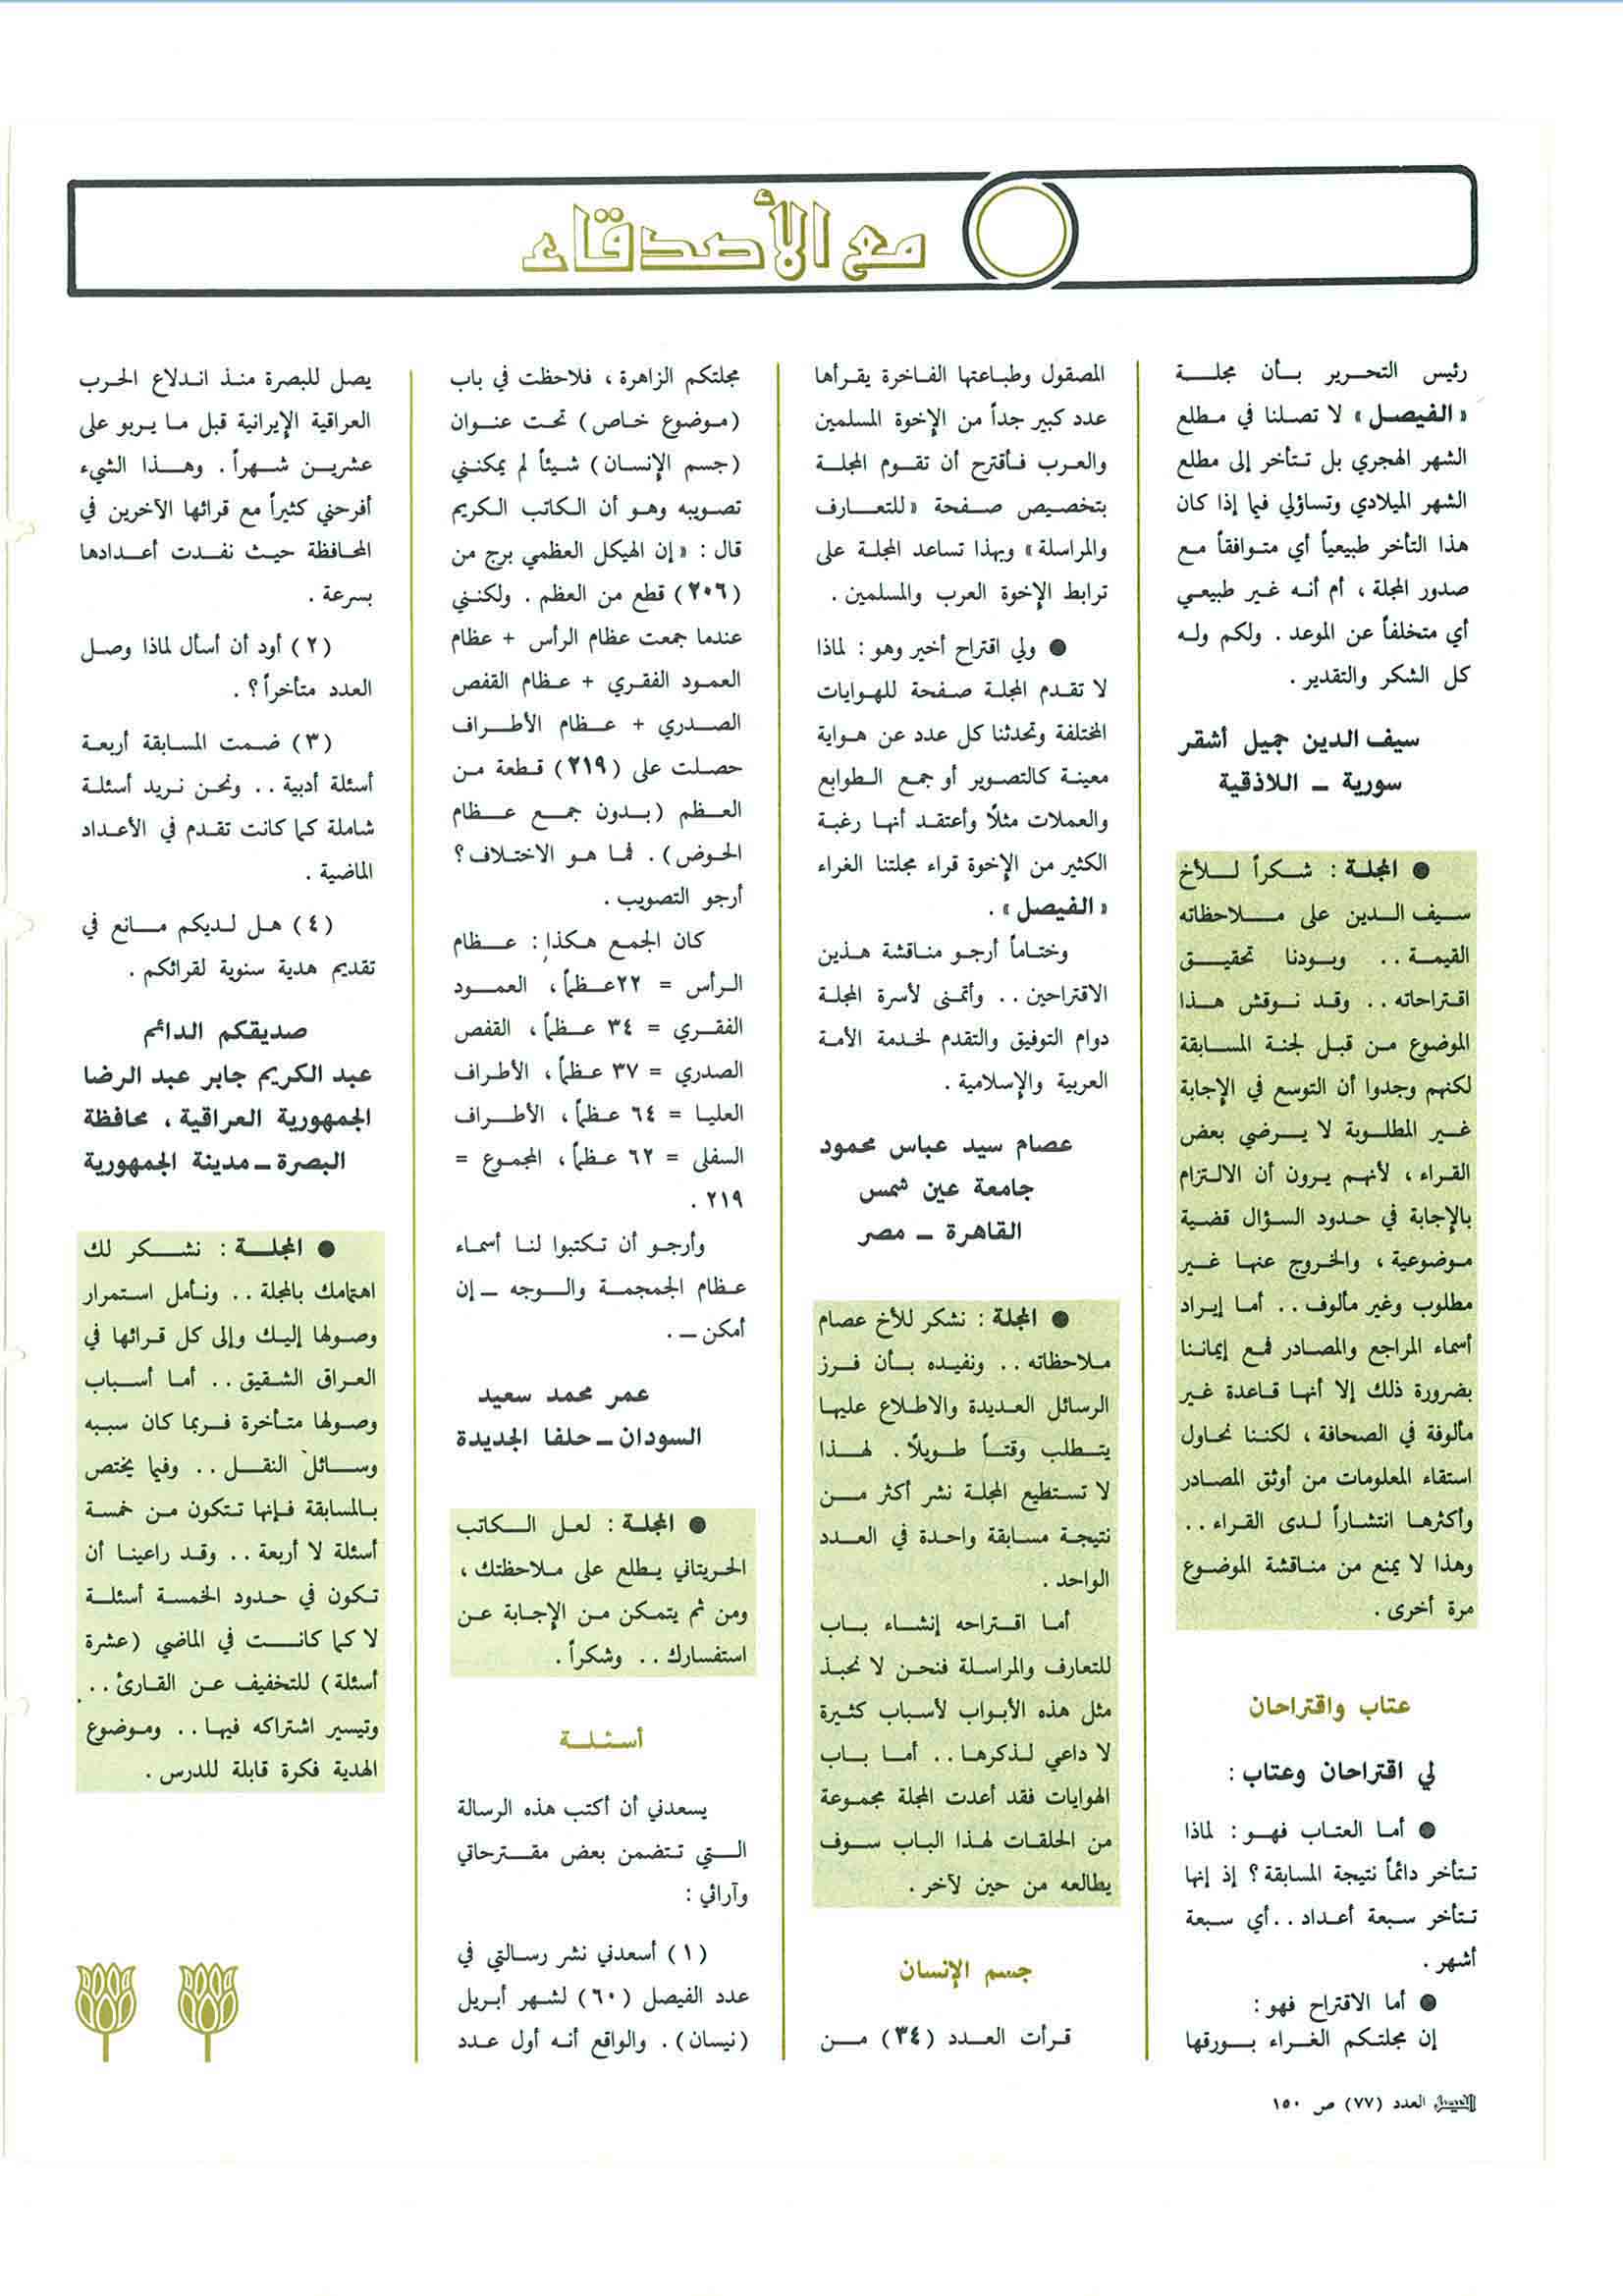 مع الأصدقاء
رئيس التحرير بأن مجلة
«الفيصل» لا تصلنا في مطلع
الشهر الهجري بل تتأخر إلى مطلع
الشهر الميلادي وتساؤلي فيما إذا كان
هذا التأخر طبيعياً أي متوافقاً مع
صدور المجلة، أم أنه غير طبيعي
أي متخلفاً عن الموعد. ولكم وله
كل الشكر والتقدير.
سيف الدين جميل أشقر
سورية ــ اللاذقية
● المجلة: شكراً للأخ
سيف الدين على ملاحظاته
القيمة.. وبودنا تحقيق
اقتراحاته.. وقد نوقش هذا
الموضوع من قبل لجنة المسابقة
لكنهم وجدوا أن التوسع في الإجابة
غير المطلوبة لا يرضي بعض
القراء، لأنهم يرون أن الالتزام
بالإجابة في حدود السؤال قضية
موضوعية، والخروج عنها غير
مطلوب وغير مألوف.. أما إيراد
أسماء المراجع والمصادر فمع إيماننا
بضرورة ذلك إلا أنها قاعدة غير
مألوفة في الصحافة، لكننا نحاول
استقاء المعلومات من أوثق المصادر
وأكثرها انتشاراً لدى القراء..
وهذا لا يمنع من مناقشة الموضوع
مرة أخرى.
عتاب واقتراحان
لي اقتراحان وعتاب:
● أما العتاب فهو: لماذا
تتأخر دائماً نتيجة المسابقة؟ إذ إنها
تتأخر سبعة أعداد.. أي سبعة
أشهر.
● أما الاقتراح فهو:
إن مجلتكم الغراء بورقها
المصقول وطباعتها الفاخرة يقرأها
عدد كبير جداً من الإخوة المسلمين
والعرب فأقترح أن تقوم المجلة
بتخصيص صفحة «للتعارف
والمراسلة» وبهذا تساعد المجلة على
ترابط الإخوة العرب والمسلمين.
● ولي اقتراح أخير وهو: لماذا
لا تقدم المجلة صفحة للهوايات
المختلفة وتحدثنا كل عدد عن هواية
معينة كالتصوير أو جمع الطوابع
والعملات مثلاً وأعتقد أنها رغبة
الكثير من الإخوة قراء مجلتنا الغراء
«الفيصل».
وختاماً أرجو مناقشة هذين
الاقتراحين.. وأتمنى لأسرة المجلة
دوام التوفيق والتقدم لخدمة الأمة
العربية والإسلامية.
عصام سيد عباس محمود
جامعة عين شمس
القاهرة ــ مصر
● المجلة: نشكر للأخ عصام
ملاحظاته.. ونفيده بأن فرز
الرسائل العديدة والاطلاع عليها
يتطلب وقتاً طويلاً. لهذا
لا تستطيع المجلة نشر أكثر من
نتيجة مسابقة واحدة في العدد
الواحد.
أما اقتراحه إنشاء باب
للتعارف والمراسلة فنحن لا نحبذ
مثل هذه الأبواب لأسباب كثيرة
لا داعي لذكرها.. أما باب
الهوايات فقد أعدت المجلة مجموعة
من الحلقات لهذا الباب سوف
يطالعه من حين لآخر.
جسم الإنسان
قرأت العدد (٣٤) من
مجلتكم الزاهرة، فلاحظت في باب
(موضوع خاص) تحت عنوان
(جسم الإنسان) شيئاً لم يمكنني
تصويبه وهو أن الكاتب الكريم
قال: «إن الهيكل العظمي برج من
(٢٠٦) قطع من العظم. ولكنني
عندما جمعت عظام الرأس + عظام
العمود الفقري + عظام القفص
الصدري + عظام الأطراف
حصلت على (٢١٩) قطعة من
العظم (بدون جمع عظام
الحوض). فما هو الاختلاف؟
أرجو التصويب.
كان الجمع هكذا: عظام
الرأس = ٢٢ عظماً، العمود
الفقري = ٣٤ عظماً، القفص
الصدري = ٣٧ عظماً، الأطراف
العليا = ٦٤ عظماً، الأطراف
السفلى = ٦٢ عظماً، المجموع =
٢١٩.
وأرجو أن تكتبوا لنا أسماء
عظام الجمجمة والوجه ــ إن
أمكن ــ.
عمر محمد سعيد
السودان ــ حلفا الجديدة
● المجلة: لعل الكاتب
الحريتاني يطلع على ملاحظتك،
ومن ثم يتمكن من الإجابة عن
استفسارك.. وشكراً.
أسئلة
يسعدني أن أكتب هذه الرسالة
التي تتضمن بعض مقترحاتي
وآرائي:
(١) أسعدني نشر رسالتي في
عدد الفيصل (٦٠) لشهر أبريل
(نيسان). والواقع أنه أول عدد
يصل للبصرة منذ اندلاع الحرب
العراقية الإيرانية قبل ما يربو على
عشرين شهراً. وهذا الشيء
أفرحني كثيراً مع قرائها الآخرين في
المحافظة حيث نفدت أعدادها
بسرعة.
(٢) أود أن أسأل لماذا وصل
العدد متأخراً؟.
(٣) ضمت المسابقة أربعة
أسئلة أدبية.. ونحن نريد أسئلة
شاملة كما كانت تقدم في الأعداد
الماضية.
(٤) هل لديكم مانع في
تقديم هدية سنوية لقرائكم.
صديقكم الدائم
عبد الكريم جابر عبد الرضا
الجمهورية العراقية، محافظة
البصرة ــ مدينة الجمهورية
● المجلة: نشكر لك
اهتمامك بالمجلة.. ونأمل استمرار
وصولها إليك وإلى كل قرائها في
العراق الشقيق.. أما أسباب
وصولها متأخرة فربما كان سببه
وسائل النقل.. وفيما يختص
بالمسابقة فإنها تتكون من خمسة
أسئلة لا أربعة.. وقد راعينا أن
تكون في حدود الخمسة أسئلة
لا كما كانت في الماضي (عشرة
أسئلة) للتخفيف عن القارئ..
وتيسير اشتراكه فيها.. وموضوع
الهدية فكرة قابلة للدرس.
الفيصل العدد (٧٧) ص ١٥٠